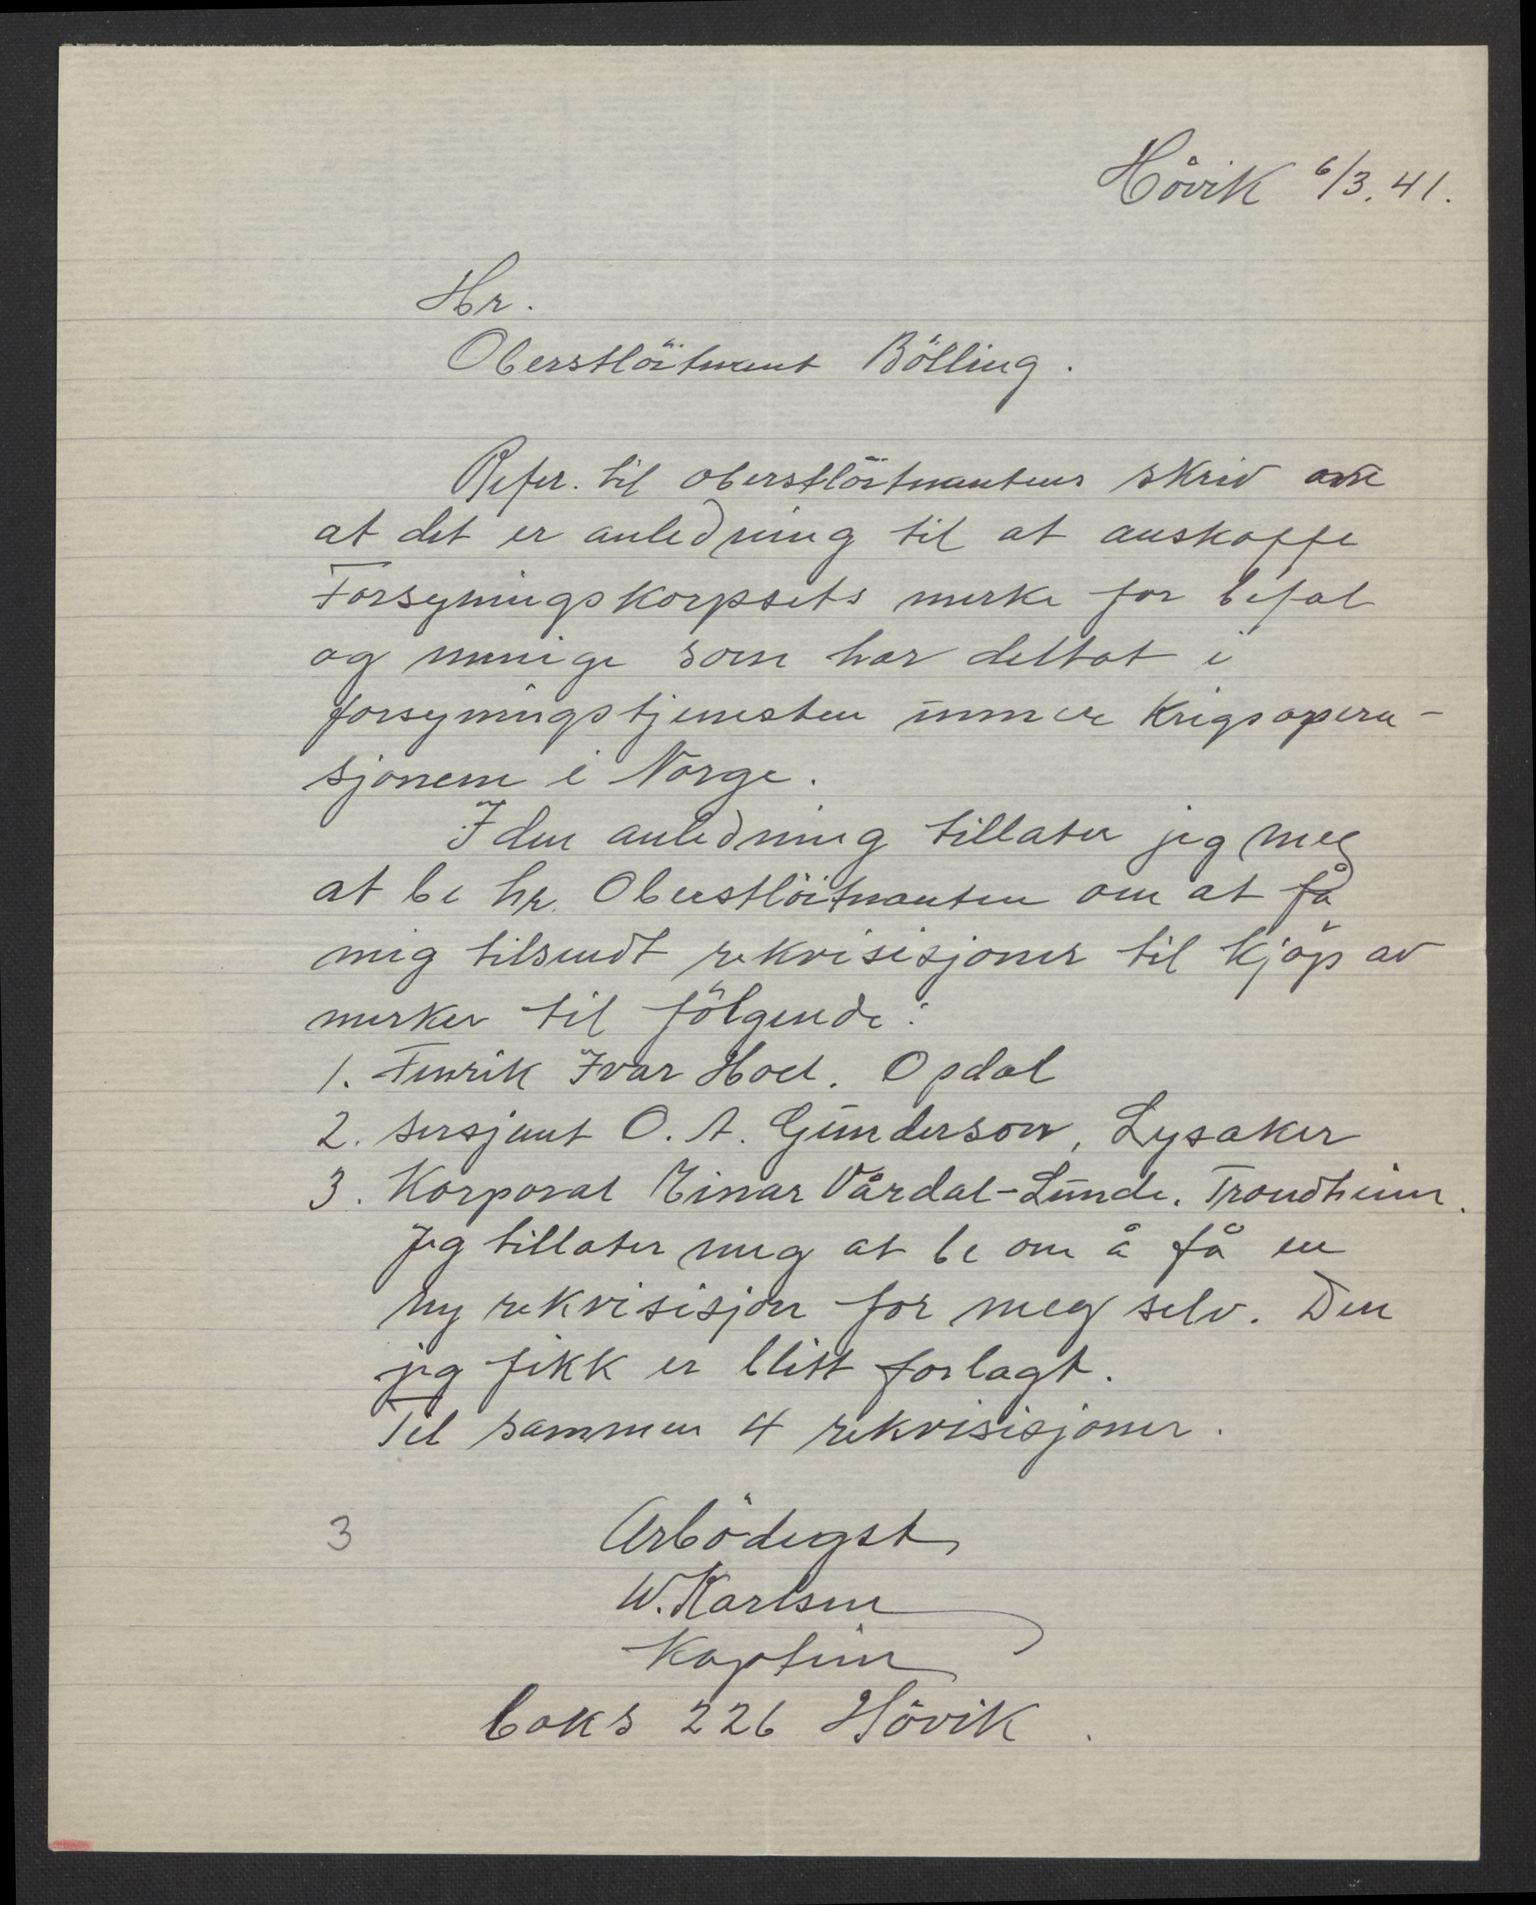 Hövik 6/3.41.
Hr.
Oberstlöitnant Bölling.
Refer. til oberstlöitnantens skriv om
at det er anledning til at anskaffe
Forsyningskorpsets merke for befal
og menige som har deltat i
forsyningstjenesten under Krigsopera-
sjonene i Norge.
I den anledning tillater jeg meg
at be hr. Oberstlöitnanten om at få
mig tilsendt rekvisisjoner til kjöp av
merker til fölgende:
1. Fenrik Ivar Hoel. Opdal
2. sersjant O. A. Gunderson, Lysaker
3. Korporal Einar Vårdal-Lunde. Trondheim.
Jeg tillater mig at be om å få en
ny rekvisisjon for meg selv. Den
jeg fikk er blitt forlagt.
Til sammen 4 rekvisisjoner.
3
Ærbödigst
W. Karlsen
Kaptein
boks 226 Hövik